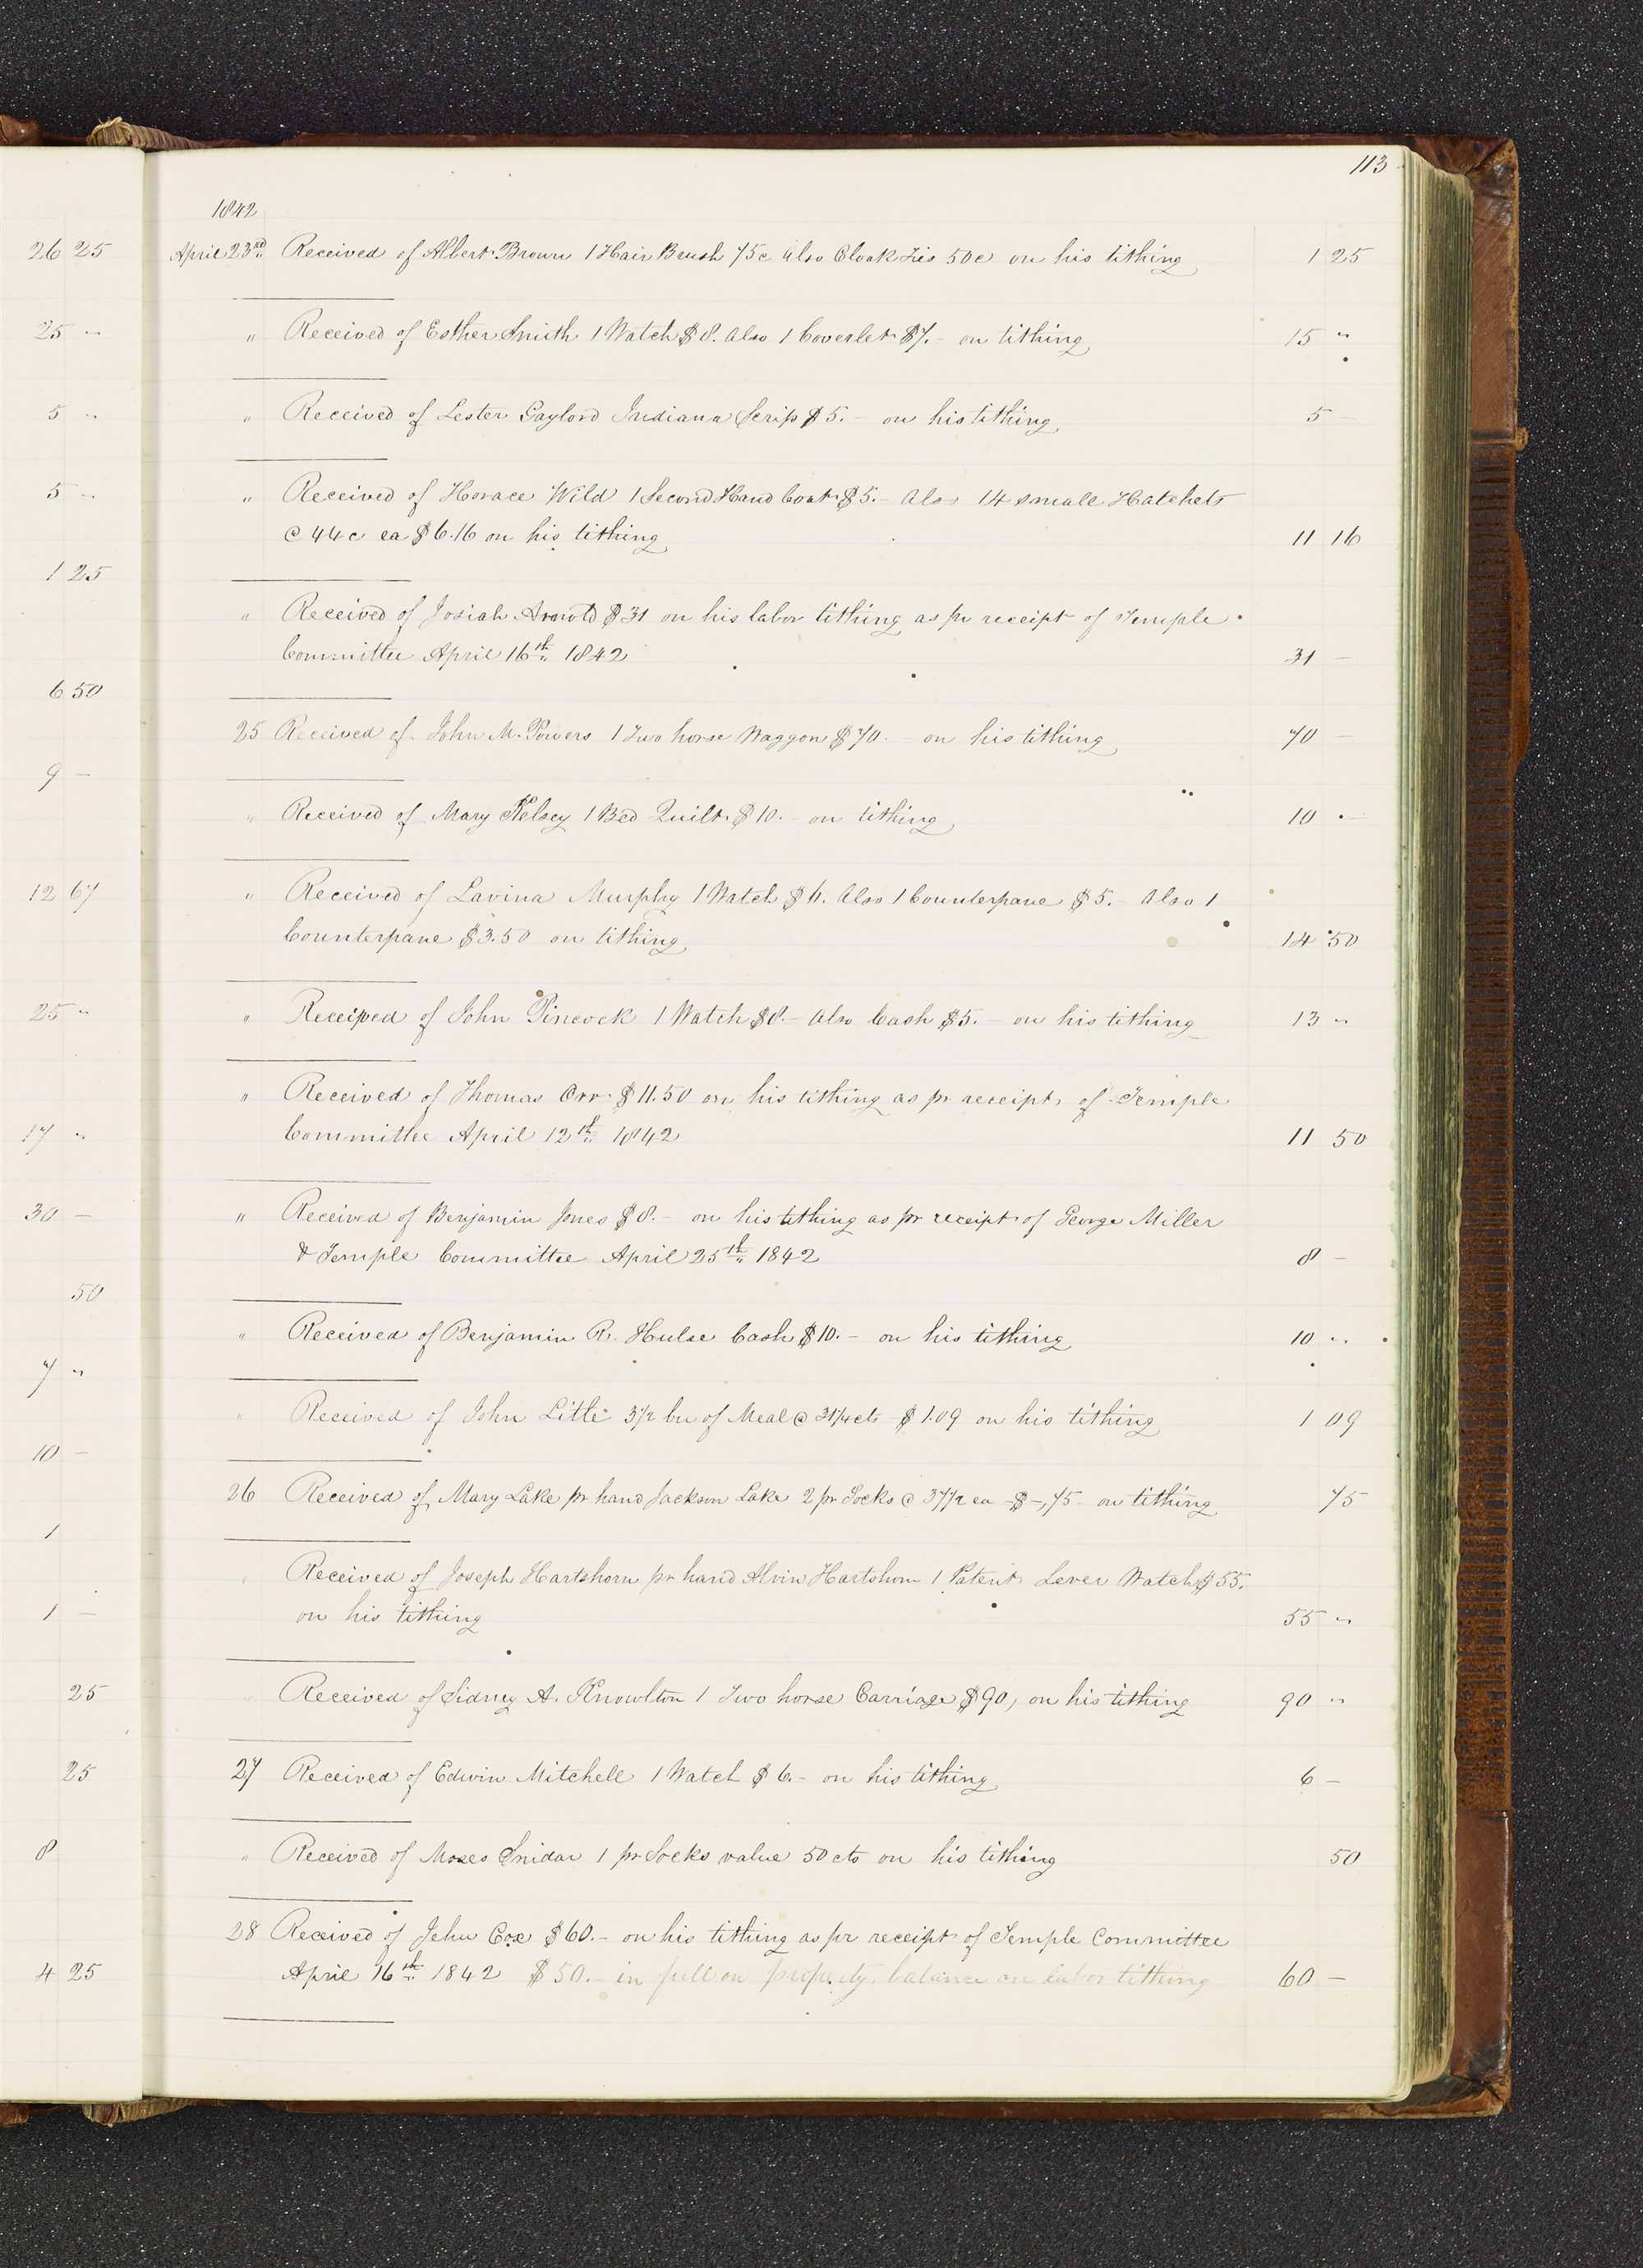 113
1842
26 25
April 23rd Received of Albert Brown 1 Hair Brush 75c Also Cloak Ties 50c on his tithing 1 25
25 "
" Received of Esther Smith 1 Watch $8. Also 1 Coverlet $7.- on tithing 15 "
5 "
" Received of Lester Gaylord Indiana Scrip $5.- on his tithing 5 -
5 "
" Received of Horace Wild 1 Second Hand Coat $5.- Also 14 small Hatchets
@ 44c ea $6.16 on his tithing 11 16
1 25
" Received of Josiah Arnold $31 on his labor tithing as pr receipt of Temple
Committee April 16th 1842 31 -
6 50
25 Received of John M. Powers 1 Two horse Waggon $70.- on his tithing 70 -
9 -
" Received of Mary Kelsey 1 Bed Quilt $10.- on tithing 10 -
12 67
" Received of Lavina Murphy 1 Watch $6. Also 1 Counterpane $5.- Also 1
Counterpane $3.50 on tithing 14 50
25 "
" Received of John Pincock 1 Watch $8.- Also Cash $5.- on his tithing 13 "
" Received of Thomas Orr $11.50 on his tithing as pr receipt of Temple
17 "
Committee April 12th 1842 11 50
30 -
" Received of Benjamin Jones $8.- on his tithing as pr receipt of George Miller
& Temple Committee April 25th 1842 8 -
50
" Received of Benjamin R. Hulse Cash $10.- on his tithing 10 "
7 "
" Received of John Little 3 1/2 bu of Meal @ 31 1/4 cts $1.09 on his tithing 1 09
10 -
26 Received of Mary Lake pr hand Jackson Lake 2 pr Socks @ 37 1/2 ea $-,75 on tithing 75
1
" Received of Joseph Hartshorn pr hand Alvin Hartshorn 1 Patent Lever Watch $55.
1 -
on his tithing 55 "
25
" Received of Sidney A. Knowlton 1 Two horse Carriage $90, on his tithing 90 "
25
27 Received of Edwin Mitchell 1 Watch $6.- on his tithing 6 -
8
" Received of Moses Snidar 1 pr Socks value 50 cts on his tithing 50
28 Received of Jehu Cox $60.- on his tithing as pr receipt of Temple Committee
4 25
April 16th 1842 $50.- in full on property, balance on labor tithing 60 -